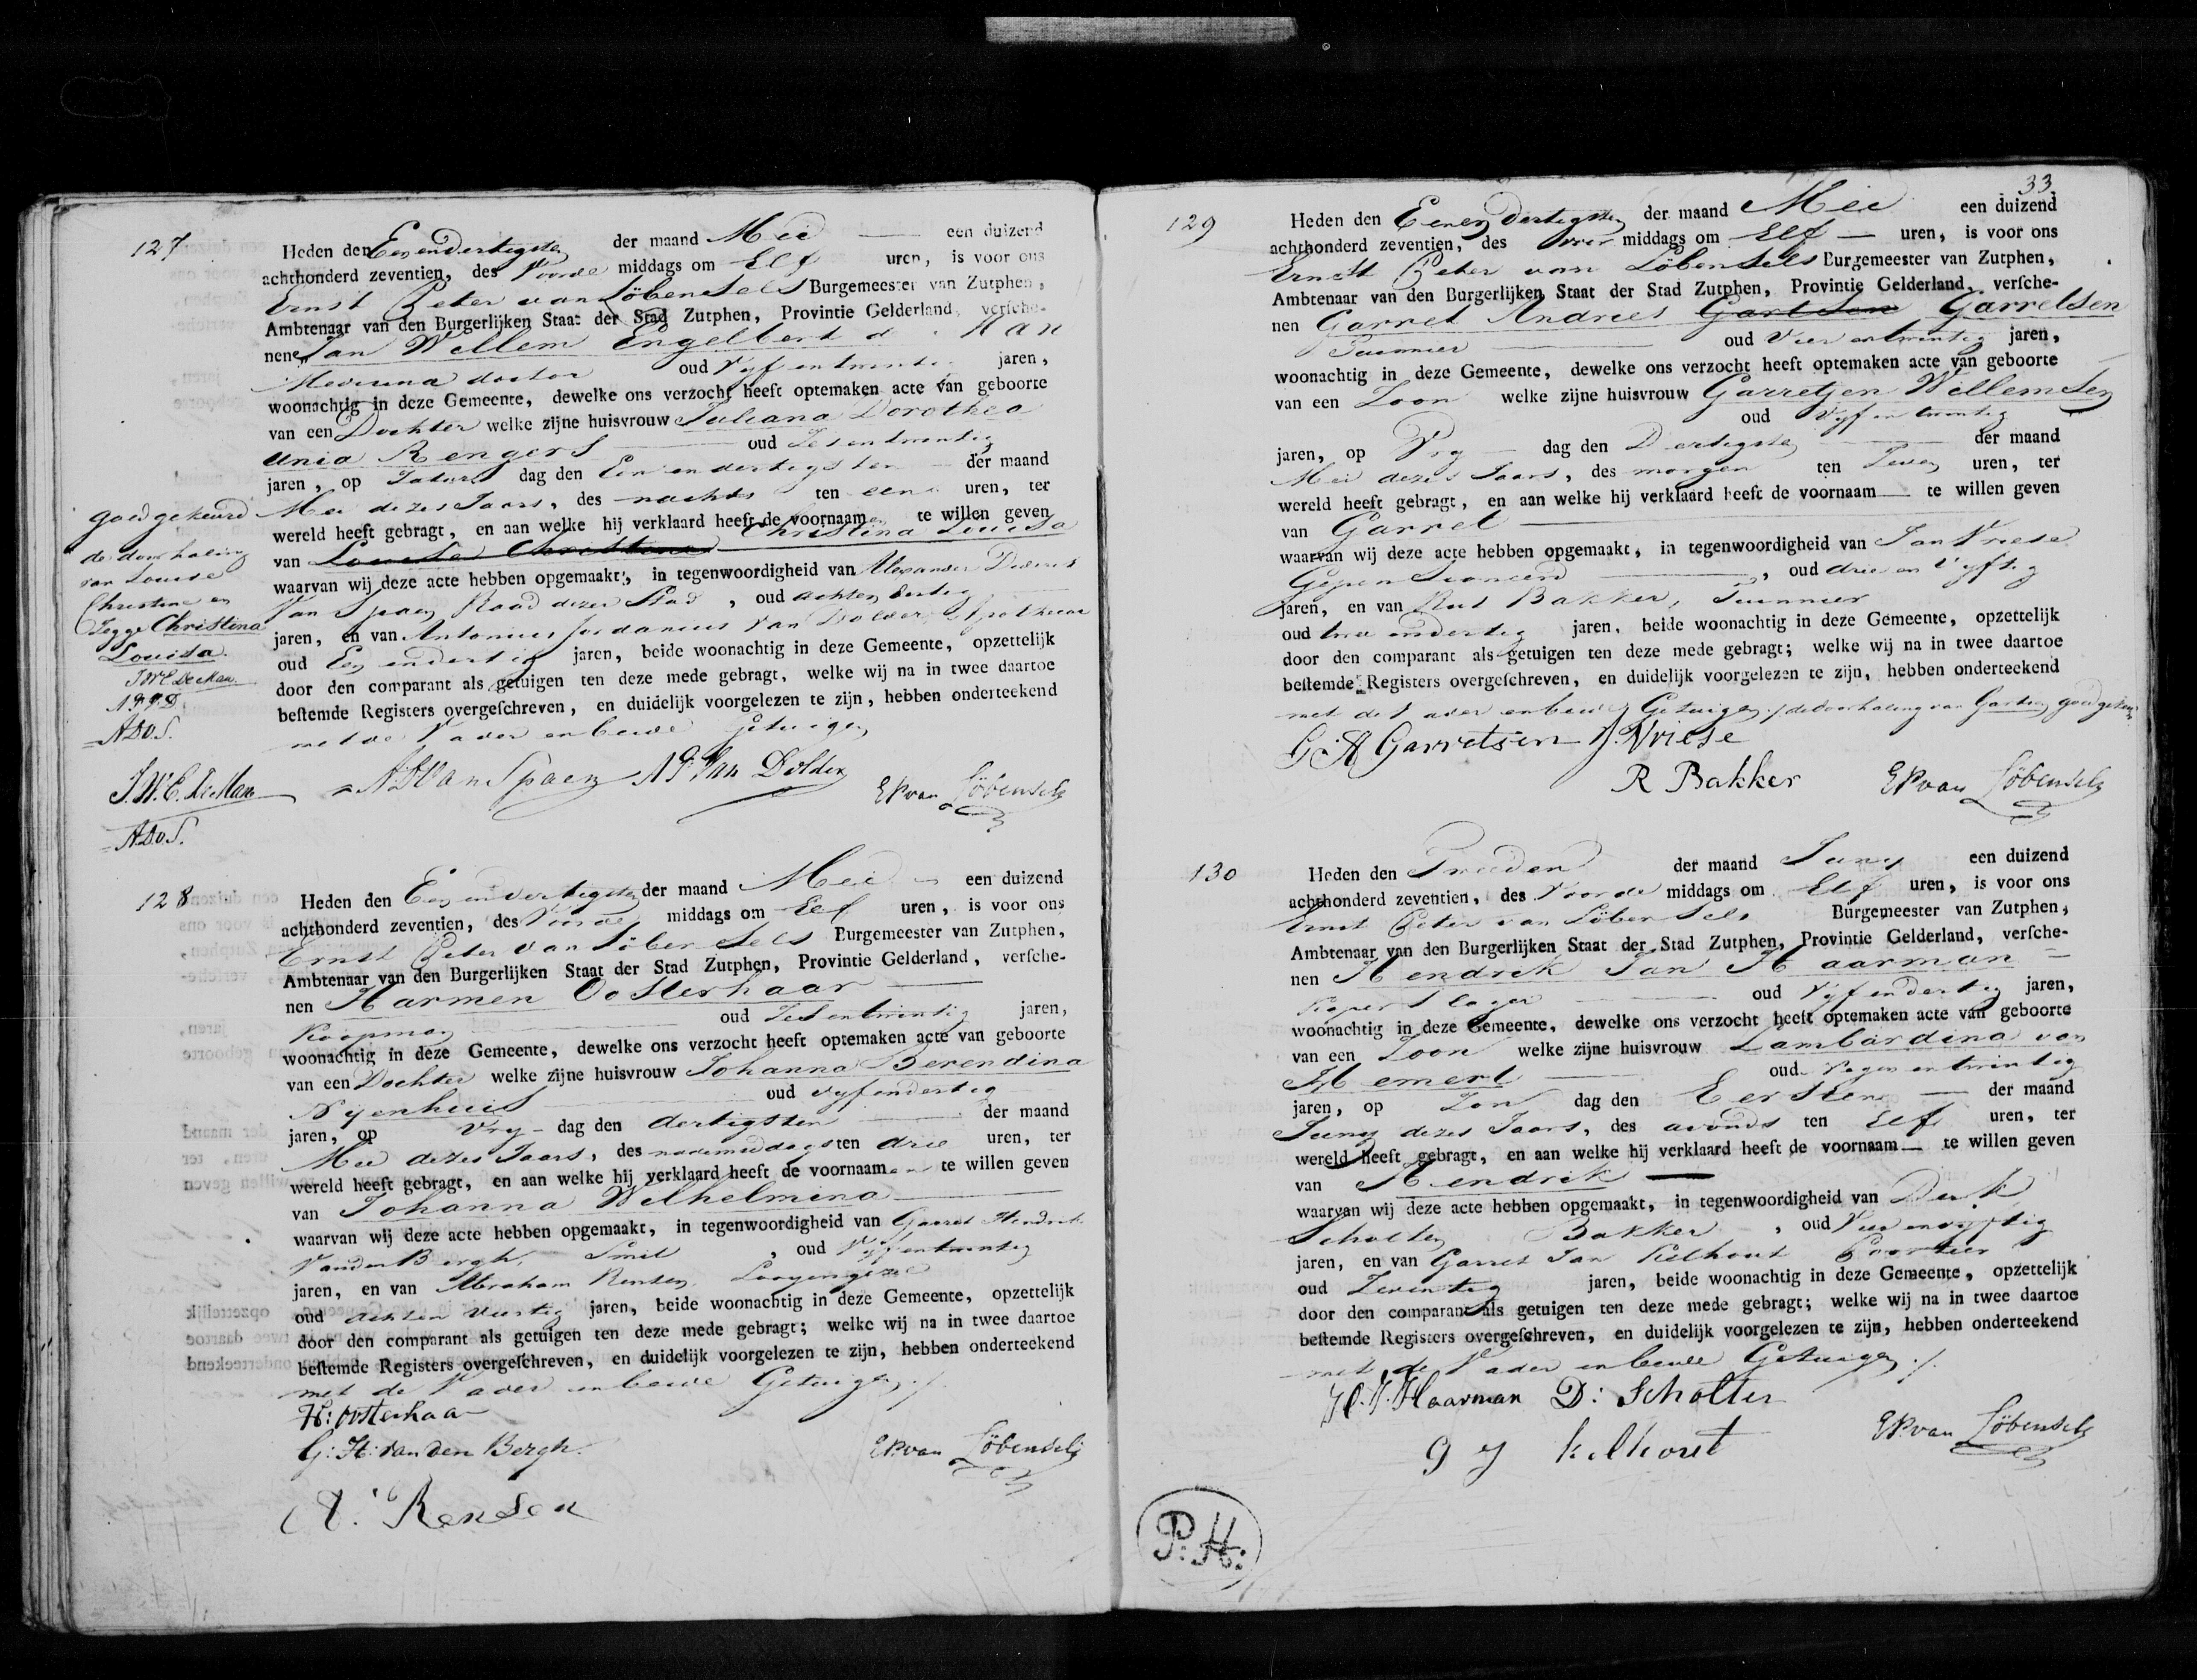 127
Heden den Een en dertigsten der maand Mei een duizend
achthonderd zeventien, des Voorde middags om Elf uren, is voor ons
Ernst Peter van Löbensels Burgemeester van Zutphen,
Ambtenaar van den Burgerlijken Staat der Stad Zutphen, Provintie Gelderland, versche-
nen Jan Willem Engelbert de Man
Medicina doctor oud Vyf en twintig jaren,
woonachtig in deze Gemeente, dewelke ons verzocht heeft optemaken acte van geboorte
van een Dochter welke zijne huisvrouw Juliana Dorothea
Unia Rengers oud Zes en twintig
jaren, op Saturdag den Een en dertigsten der maand
Mei dezes Jaars, des nachts ten een uren, ter
wereld heeft gebragt, en aan welke hij verklaard heeft de voornaamen te willen geven
van Louise Christina Christina Louisa
waarvan wij deze acte hebben opgemaakt, in tegenwoordigheid van Alexander Diderick
Van Spaen Raad dezer Stad, oud achten dertig
jaren, en van Antonius Jordanius Van Dolder, Apothecar
oud Een en dertig jaren, beide woonachtig in deze Gemeente, opzettelijk
door den comparant als getuigen ten deze mede gebragt, welke wij na in twee daartoe
bestemde Registers overgeschreven, en duidelijk voorgelezen te zijn, hebben onderteekend
met de Vader en beide Getuigen
goedgekeurd
de doorhaling
van Louise
Christine en
Zegge Christina
Louisa.
J.W.E. De Man.
A.D.v.S.
J.W.E. De Man
A.D.v.S.
A D Van Spaen A J Van Dolder
EP van Löbensels
128
Heden den Een en dertigsten der maand Mei een duizend
achthonderd zeventien, des Voorde middags om Elf uren, is voor ons
Ernst Peter van Löbensels Burgemeester van Zutphen,
Ambtenaar van den Burgerlijken Staat der Stad Zutphen, Provintie Gelderland, versche-
nen Harmen Oosterhaar
Koopman oud Zes en twintig jaren,
woonachtig in deze Gemeente, dewelke ons verzocht heeft optemaken acte van geboorte
van een Dochter welke zijne huisvrouw Johanna Berendina
Nijenhuis oud vyf en dertig
jaren, op Vry-dag den dertigsten der maand
Mei dezes Jaars, des nademiddags ten drie uren, ter
wereld heeft gebragt, en aan welke hij verklaard heeft de voornaamen te willen geven
van Johanna Wilhelmina
waarvan wij deze acte hebben opgemaakt, in tegenwoordigheid van Garret Hendrik
Van den Bergh, Smit, oud Vyf en twintig
jaren, en van Abraham Rensen,
oud achten Veertig jaren, beide woonachtig in deze Gemeente, opzettelijk
door den comparant als getuigen ten deze mede gebragt; welke wij na in twee daartoe
bestemde Registers overgeschreven, en duidelijk voorgelezen te zijn, hebben onderteekend
met de Vader en beide Getuigen ./.
H: Osterhaar
G: H: van den Bergh.
EP van Löbensels
A: Rensen
33
129
Heden den Een en Dertigsten der maand Mei een duizend
achthonderd zeventien, des Voor middags om Elf uren, is voor ons
Ernst Peter van Löbensels Burgemeester van Zutphen,
Ambtenaar van den Burgerlijken Staat der Stad Zutphen, Provintie Gelderland, versche-
nen Garret Andries Gartsen Garretsen
Tuinnier oud Vier en twintig jaren,
woonachtig in deze Gemeente, dewelke ons verzocht heeft optemaken acte van geboorte
van een Zoon welke zijne huisvrouw Garretjen Willemsen
oud Vyf en twintig
jaren, op Vry dag den Dertigsten der maand
Mei dezes Jaars, des morgen ten Zeven uren, ter
wereld heeft gebragt, en aan welke hij verklaard heeft de voornaam te willen geven
van Garret
waarvan wij deze acte hebben opgemaakt, in tegenwoordigheid van Jan Vriese
Gepensioneerd, oud drie en Vyftig
jaren, en van Rut Bakker, Tuinnier
oud twee en dertig jaren, beide woonachtig in deze Gemeente, opzettelijk
door den comparant als getuigen ten deze mede gebragt; welke wij na in twee daartoe
bestemde Registers overgeschreven, en duidelijk voorgelezen te zijn, hebben onderteekend
met de Vader en beide Getuigen ./. de doorhaling van Gartsen goedgekeurd
G A Garretsen J. Vriese
R Bakker
EP van Löbensels
130
Heden den Tweeden der maand Juny een duizend
achthonderd zeventien, des Voorde middags om Elf uren, is voor ons
Ernst Peter van Löbensels Burgemeester van Zutphen,
Ambtenaar van den Burgerlijken Staat der Stad Zutphen, Provintie Gelderland, versche-
nen Hendrik Jan Haarman
Koperslager oud Vyf en dertig jaren,
woonachtig in deze Gemeente, dewelke ons verzocht heeft optemaken acte van geboorte
van een Zoon welke zijne huisvrouw Lambardina van
Hemert oud Negen en twintig
jaren, op Zon dag den Eersten der maand
Juny dezes Jaars, des avonds ten Elf uren, ter
wereld heeft gebragt, en aan welke hij verklaard heeft de voornaam te willen geven
van Hendrik
waarvan wij deze acte hebben opgemaakt, in tegenwoordigheid van Derk
Scholten Bakker, oud Vier en vyftig
jaren, en van Garret Jan Kelhout Poortier
oud Zeventig jaren, beide woonachtig in deze Gemeente, opzettelijk
door den comparant als getuigen ten deze mede gebragt; welke wij na in twee daartoe
bestemde Registers overgeschreven, en duidelijk voorgelezen te zijn, hebben onderteekend
met de Vader en beide Getuigen ./.
H. J. Haarman D: Scholten
G J kelhout
EP van Löbensels
P:H: